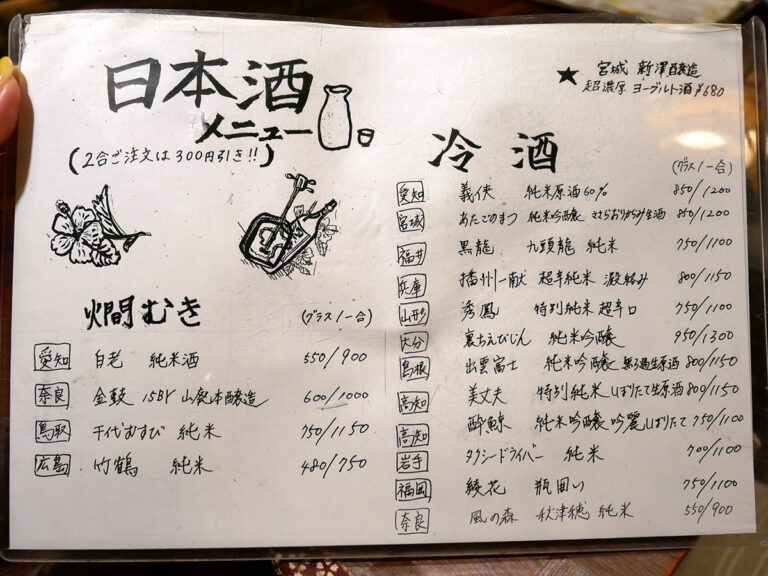 日本酒
メニュー
(2合ご注文は300円引き!!)
★ 宮城 新澤醸造
超濃厚 ヨーグルト酒 ¥680
燗むき
(グラス/一合)
愛知 白老 純米酒 550/900
奈良 金鼓 15BY 山廃本醸造 600/1000
鳥取 千代むすび 純米 750/1150
広島 竹鶴 純米 480/750
冷酒
(グラス/一合)
愛知 義侠 純米原酒60% 850/1200
宮城 あたごのまつ 純米吟醸 ささらおりがらみ生酒 850/1200
福井 黒龍 九頭龍 純米 750/1100
兵庫 播州一献 超辛純米 澱絡み 800/1150
山形 秀鳳 特別純米 超辛口 750/1100
大分 裏ちえびじん 純米吟醸 950/1300
島根 出雲富士 純米吟醸 無ろ過生原酒 800/1150
高知 美丈夫 特別純米 しぼりたて生原酒 800/1150
高知 酔鯨 純米吟醸 吟麗しぼりたて 750/1100
岩手 タクシードライバー 純米 700/1100
福岡 綾花 瓶囲い 750/1100
奈良 風の森 秋津穂 純米 550/900